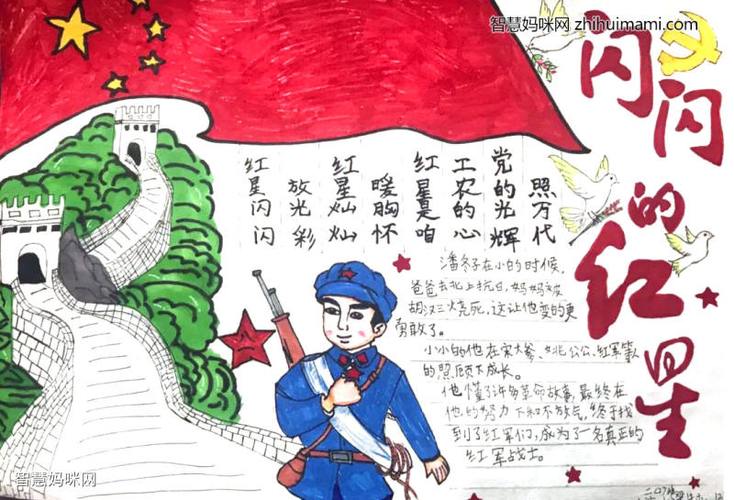 智慧妈咪网 zhihuimami.com
闪闪的红星
红星闪闪
放光彩
红星灿灿
暖胸怀
红星是咱
工农的心
党的光辉
照万代
潘冬子在小的时候,
爸爸去北上抗日,妈妈被
胡汉三烧死,这让他变的更
勇敢了。
小小的他在宋大爹、姚公公、红军等人
的照顾下成长。
他懂了许多革命故事,最终在
他的努力下和不放弃,终于找
到了红军们,成为了一名真正的
红军战士。
智慧妈咪网